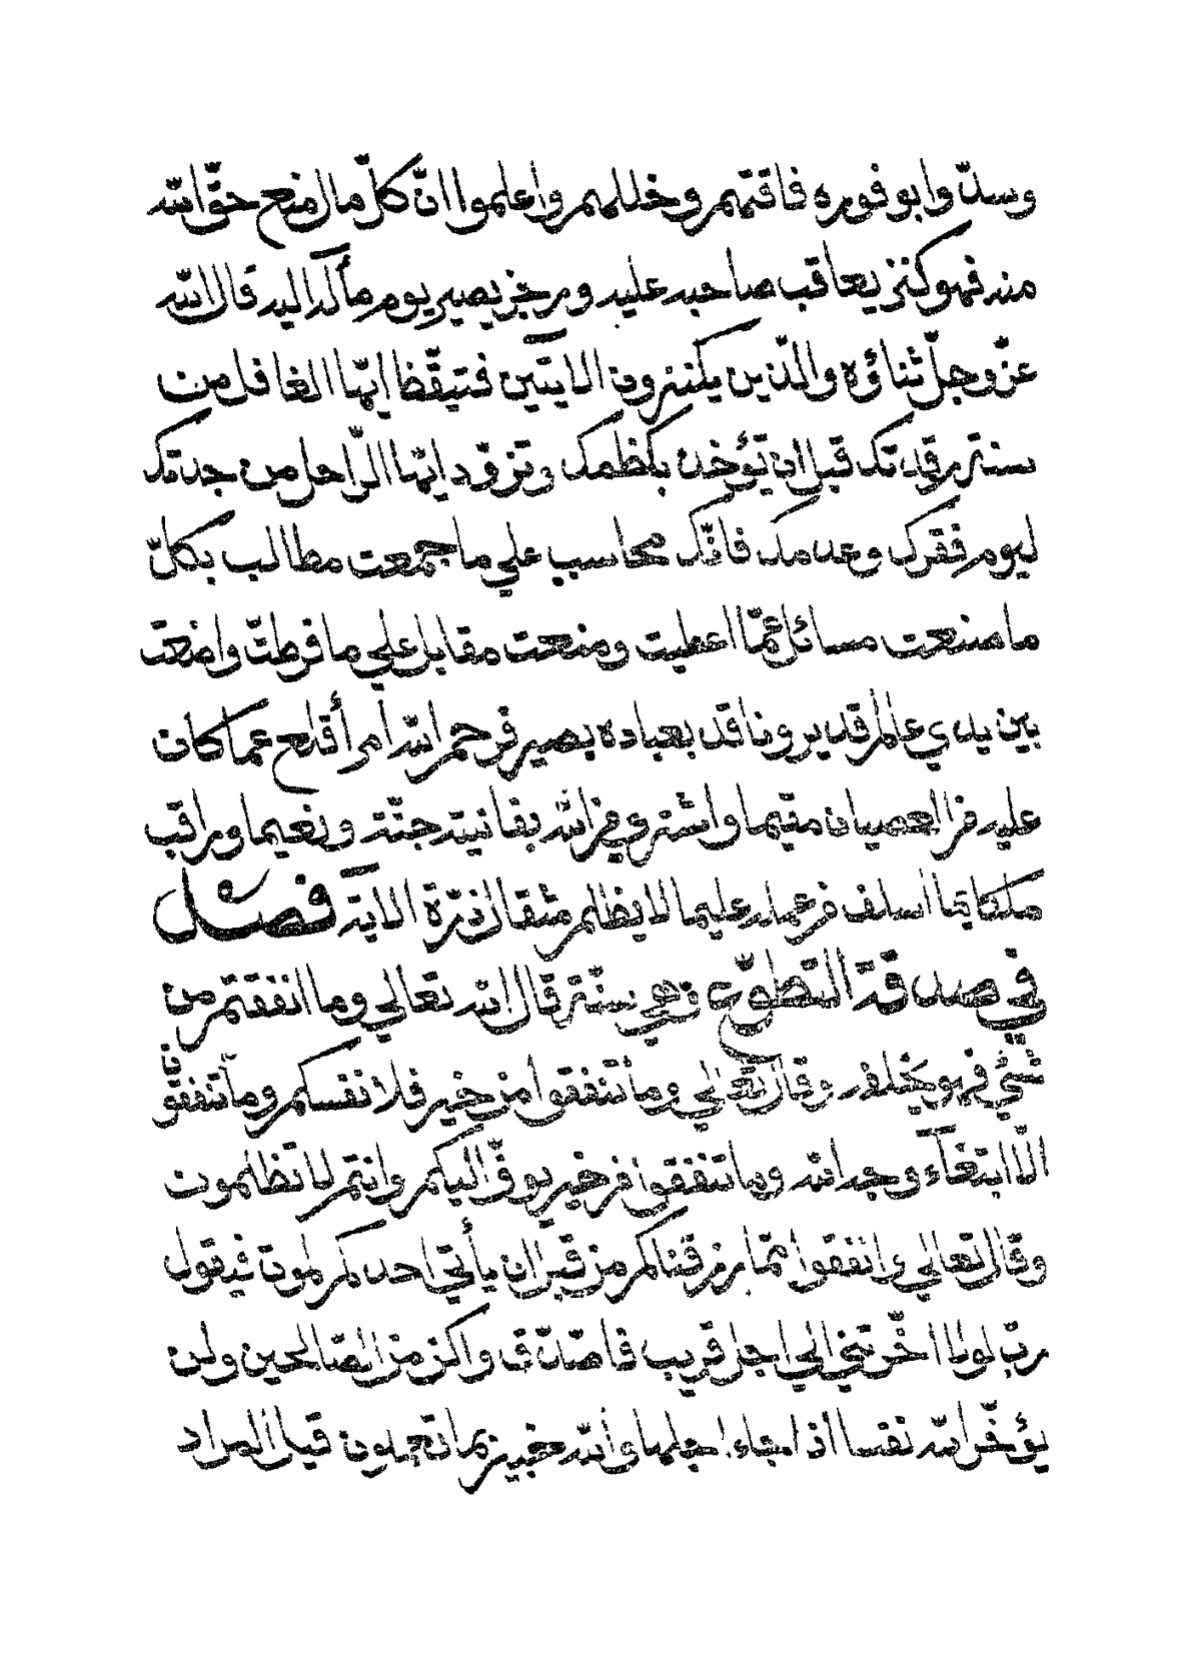 وسدّوا بوفوره فاقتهم وخللهم واعلموا انّ كلّ مال منع حقّ الله
منه فهو كنز يعاقب صاحبه عليه وبرجز يصير يوم مآله اليه قال الله
عزّ وجلّ ثناؤه والذّين يكنزون الآيتين فتيقّظ ايّها الغافل من
سنة رقدتك قبل ان تؤخذ بكظمك وتزوّد ايّها الرّاحل من جدتك
ليوم فقرك وعدمك فانّك محاسب علي ما جمعت مطالب بكلّ
ما صنعت مسائل عمّا اعطيت ومنعت مقابل علي ما فرطتّ واضعت
بين يدي عالم قدير وناقد بعباده بصير فرحم الله امرأ أقلع عما كان
عليه من العصيان مقيما واشتري من الله بفانيته جنّة ونعيما وراقب
ملكا بما اسلف من عمله عليما لا يظلم مثقال ذرّة الآية فصل
في صدقة التطوّع وهي سنّة قال الله تعالي وما انفقتم من
شئ فهو يخلفه وقال تعالي وما تنفقوا من خير فلانفسكم وما تنفقون
الّا ابتغآء وجه الله وما تنفقوا من خير يوفّ اليكم وانتم لا تظلمون
وقال تعالي وانفقوا ممّا رزقناكم من قبل ان يأتي احدكم الموت فيقول
ربّ لولا اخّرتني الي اجل قريب فاصّدّق واكن من الصّالحين ولن
يؤخّر الله نفسا اذا جاء اجلها والله خبير بما تعملون قيل المراد